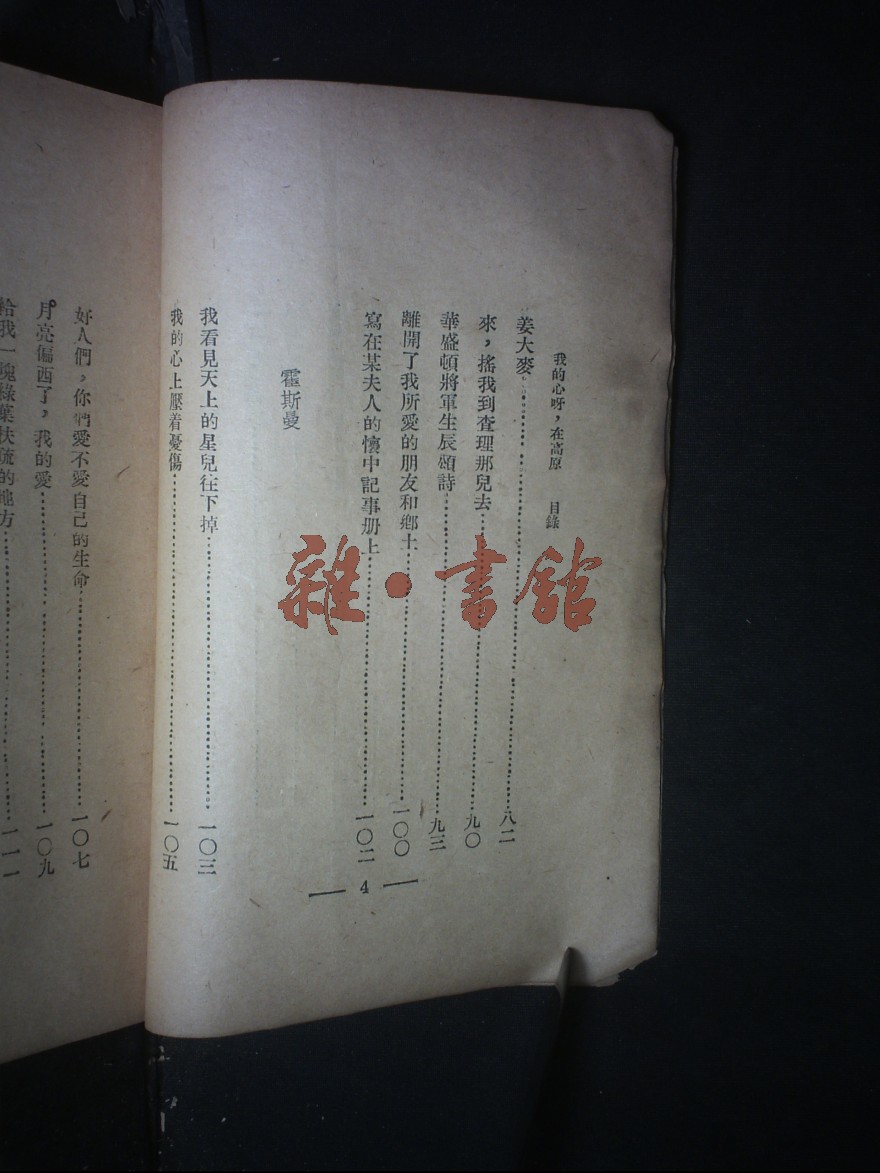 我的心呀，在高原　目錄
姜大麥……八二
來，搖我到查理那兒去……九〇
華盛頓將軍生辰頌詩……九三
離開了我所愛的朋友和鄉土……一〇〇
寫在某夫人的懷中記事册上……一〇二
霍斯曼
我看見天上的星兒往下掉……一〇三
我的心上壓着憂傷……一〇五
— 4 —
好人們，你們愛不愛自己的生命……一〇七
月亮偏西了，我的愛……一〇九
給我一塊綠葉扶疏的地方……一一一
雜·書館